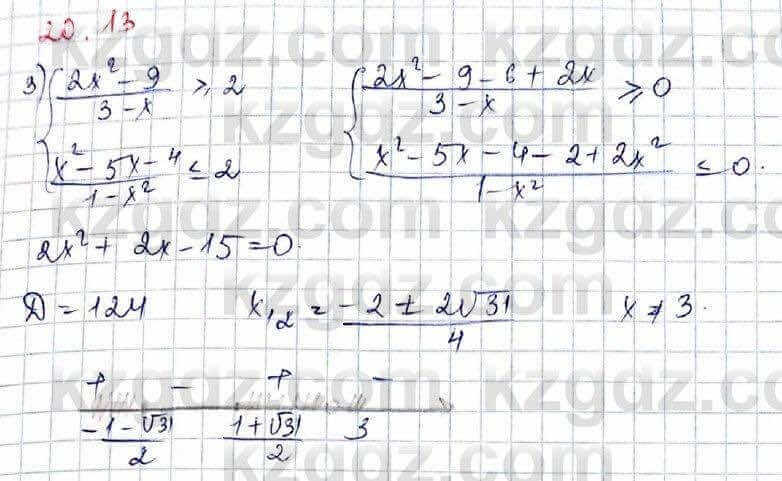 20.13
3) { (2x² - 9)/(3 - x) ≥ 2 { (2x² - 9 - 6 + 2x)/(3 - x) ≥ 0
(x² - 5x - 4)/(1 - x²) ≤ 2 (x² - 5x - 4 - 2 + 2x²)/(1 - x²) ≤ 0.
2x² + 2x - 15 = 0.
D = 124 x₁,₂ = (-2 ± 2√31)/4 x ≠ 3.
+ - + -
(-1 - √31)/2 (1 + √31)/2 3
kzgdz.com kzgdz.com
kzgdz.com kzgdz.com
kzgdz.com kzgdz.com
kzgdz.com kzgdz.com
kzgdz.com kzgdz.com
kzgdz.com kzgdz.com